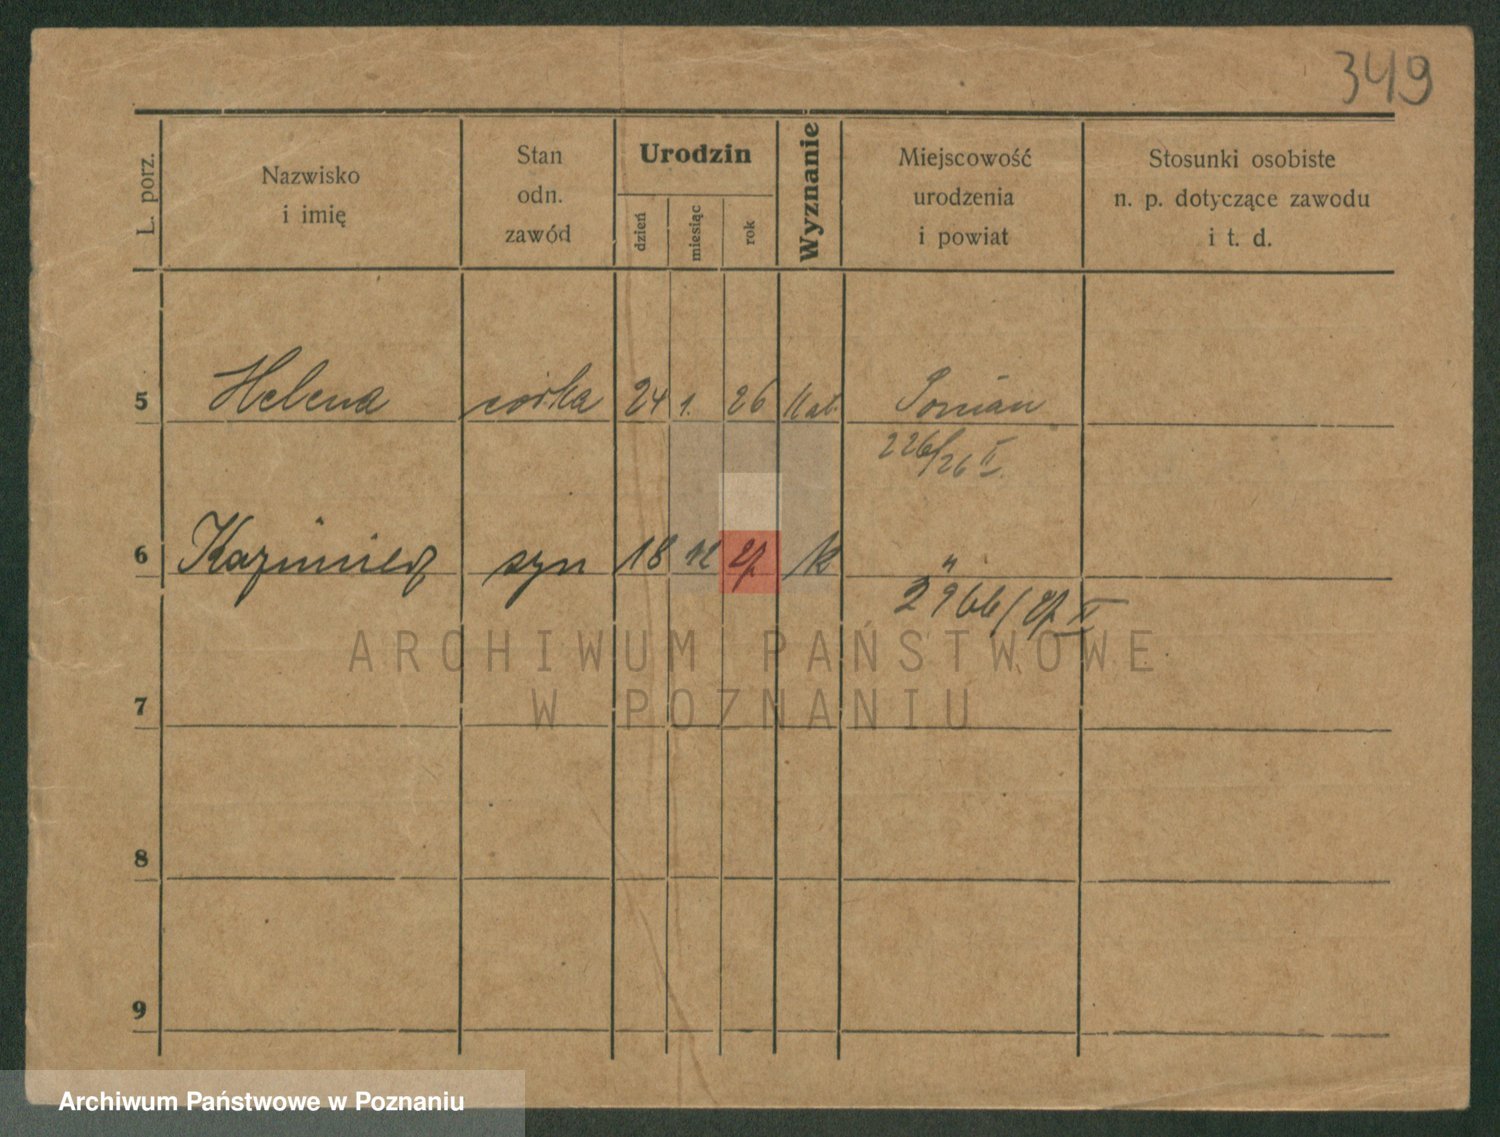 349
L. porz.
Nazwisko
i imię
Stan
odn.
zawód
Urodzin
dzień
miesiąc
rok
Wyznanie
Miejscowość
urodzenia
i powiat
Stosunki osobiste
n. p. dotyczące zawodu
i t. d.
5 Helena córka 24 1. 26 Kat.
226/26 II.
6 Kazimierz syn 18 k "
7
8
9
ARCHIWUM PAŃSTWOWE
W POZNANIU
Archiwum Państwowe w Poznaniu